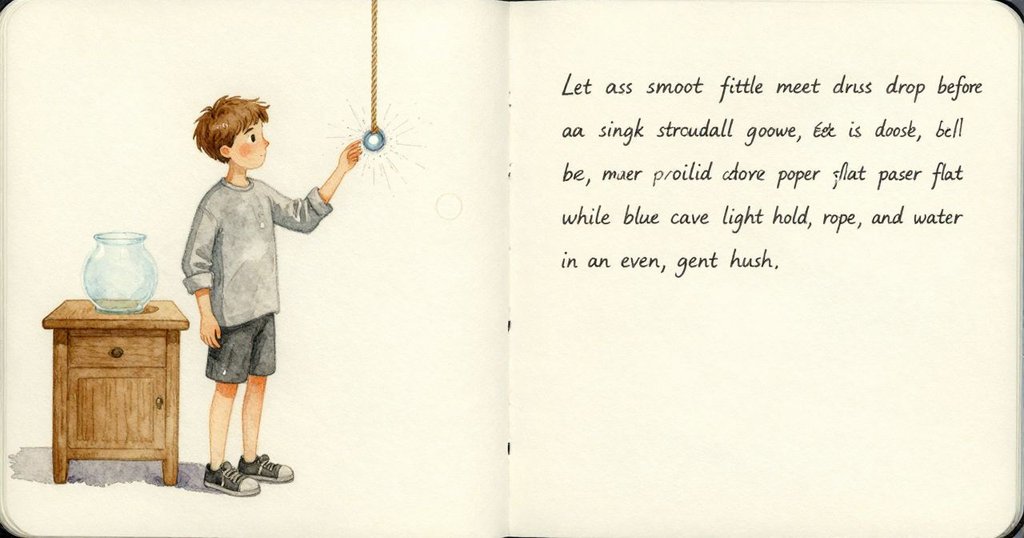 Let ass smoot fittle meet druss drop before
aa singk stroudall goowe, is doosk, bell
be, muer proilid adove poper flat paser flat
while blue cave light hold, rope, and water
in an even, gent hush.